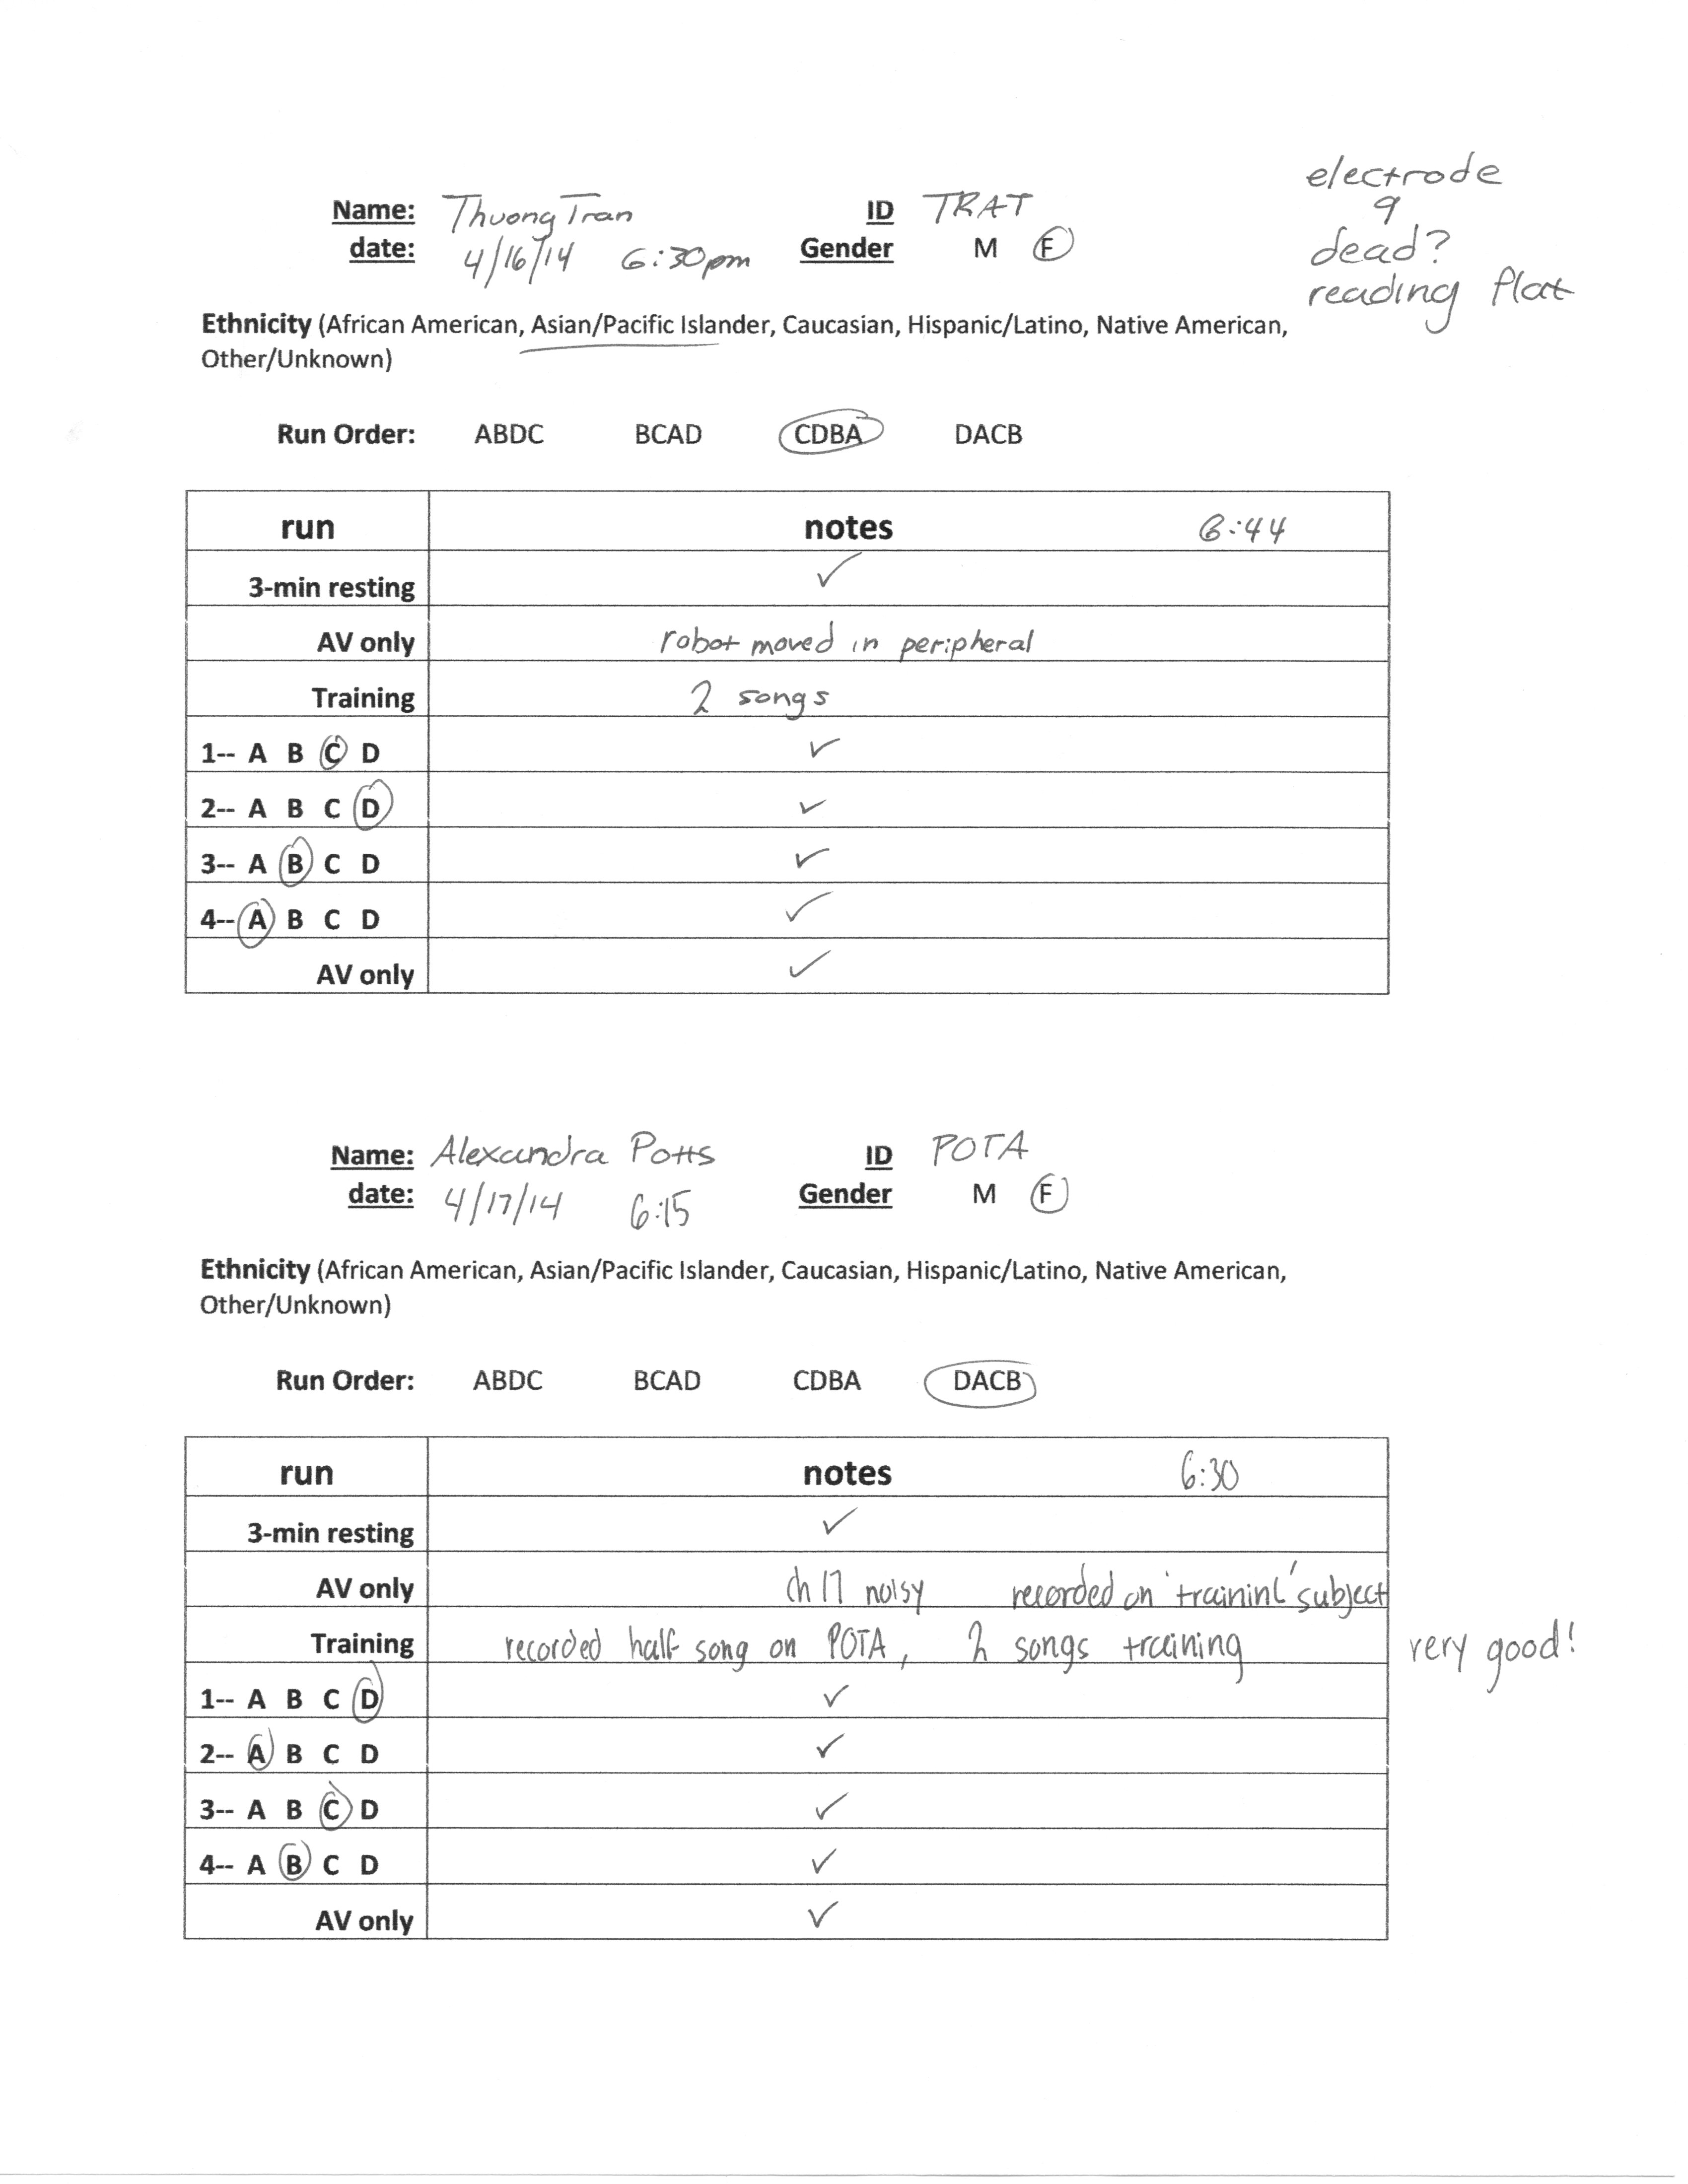 electrode
Name: Thuong Tran ID TRAT 9
date: 4/16/14 6:30pm Gender M F dead?
reading flat
Ethnicity (African American, Asian/Pacific Islander, Caucasian, Hispanic/Latino, Native American,
Other/Unknown)
Run Order: ABDC BCAD CDBA DACB
run notes 6:44
3-min resting ✓
AV only robot moved in peripheral
Training 2 songs
1-- A B C D ✓
2-- A B C D ✓
3-- A B C D ✓
4-- A B C D ✓
AV only ✓
Name: Alexandra Potts ID POTA
date: 4/17/14 6:15 Gender M F
Ethnicity (African American, Asian/Pacific Islander, Caucasian, Hispanic/Latino, Native American,
Other/Unknown)
Run Order: ABDC BCAD CDBA DACB
run notes 6:30
3-min resting ✓
AV only ch 17 noisy recorded on 'traininl' subject
Training recorded half song on POTA, 2 songs training very good!
1-- A B C D ✓
2-- A B C D ✓
3-- A B C D ✓
4-- A B C D ✓
AV only ✓